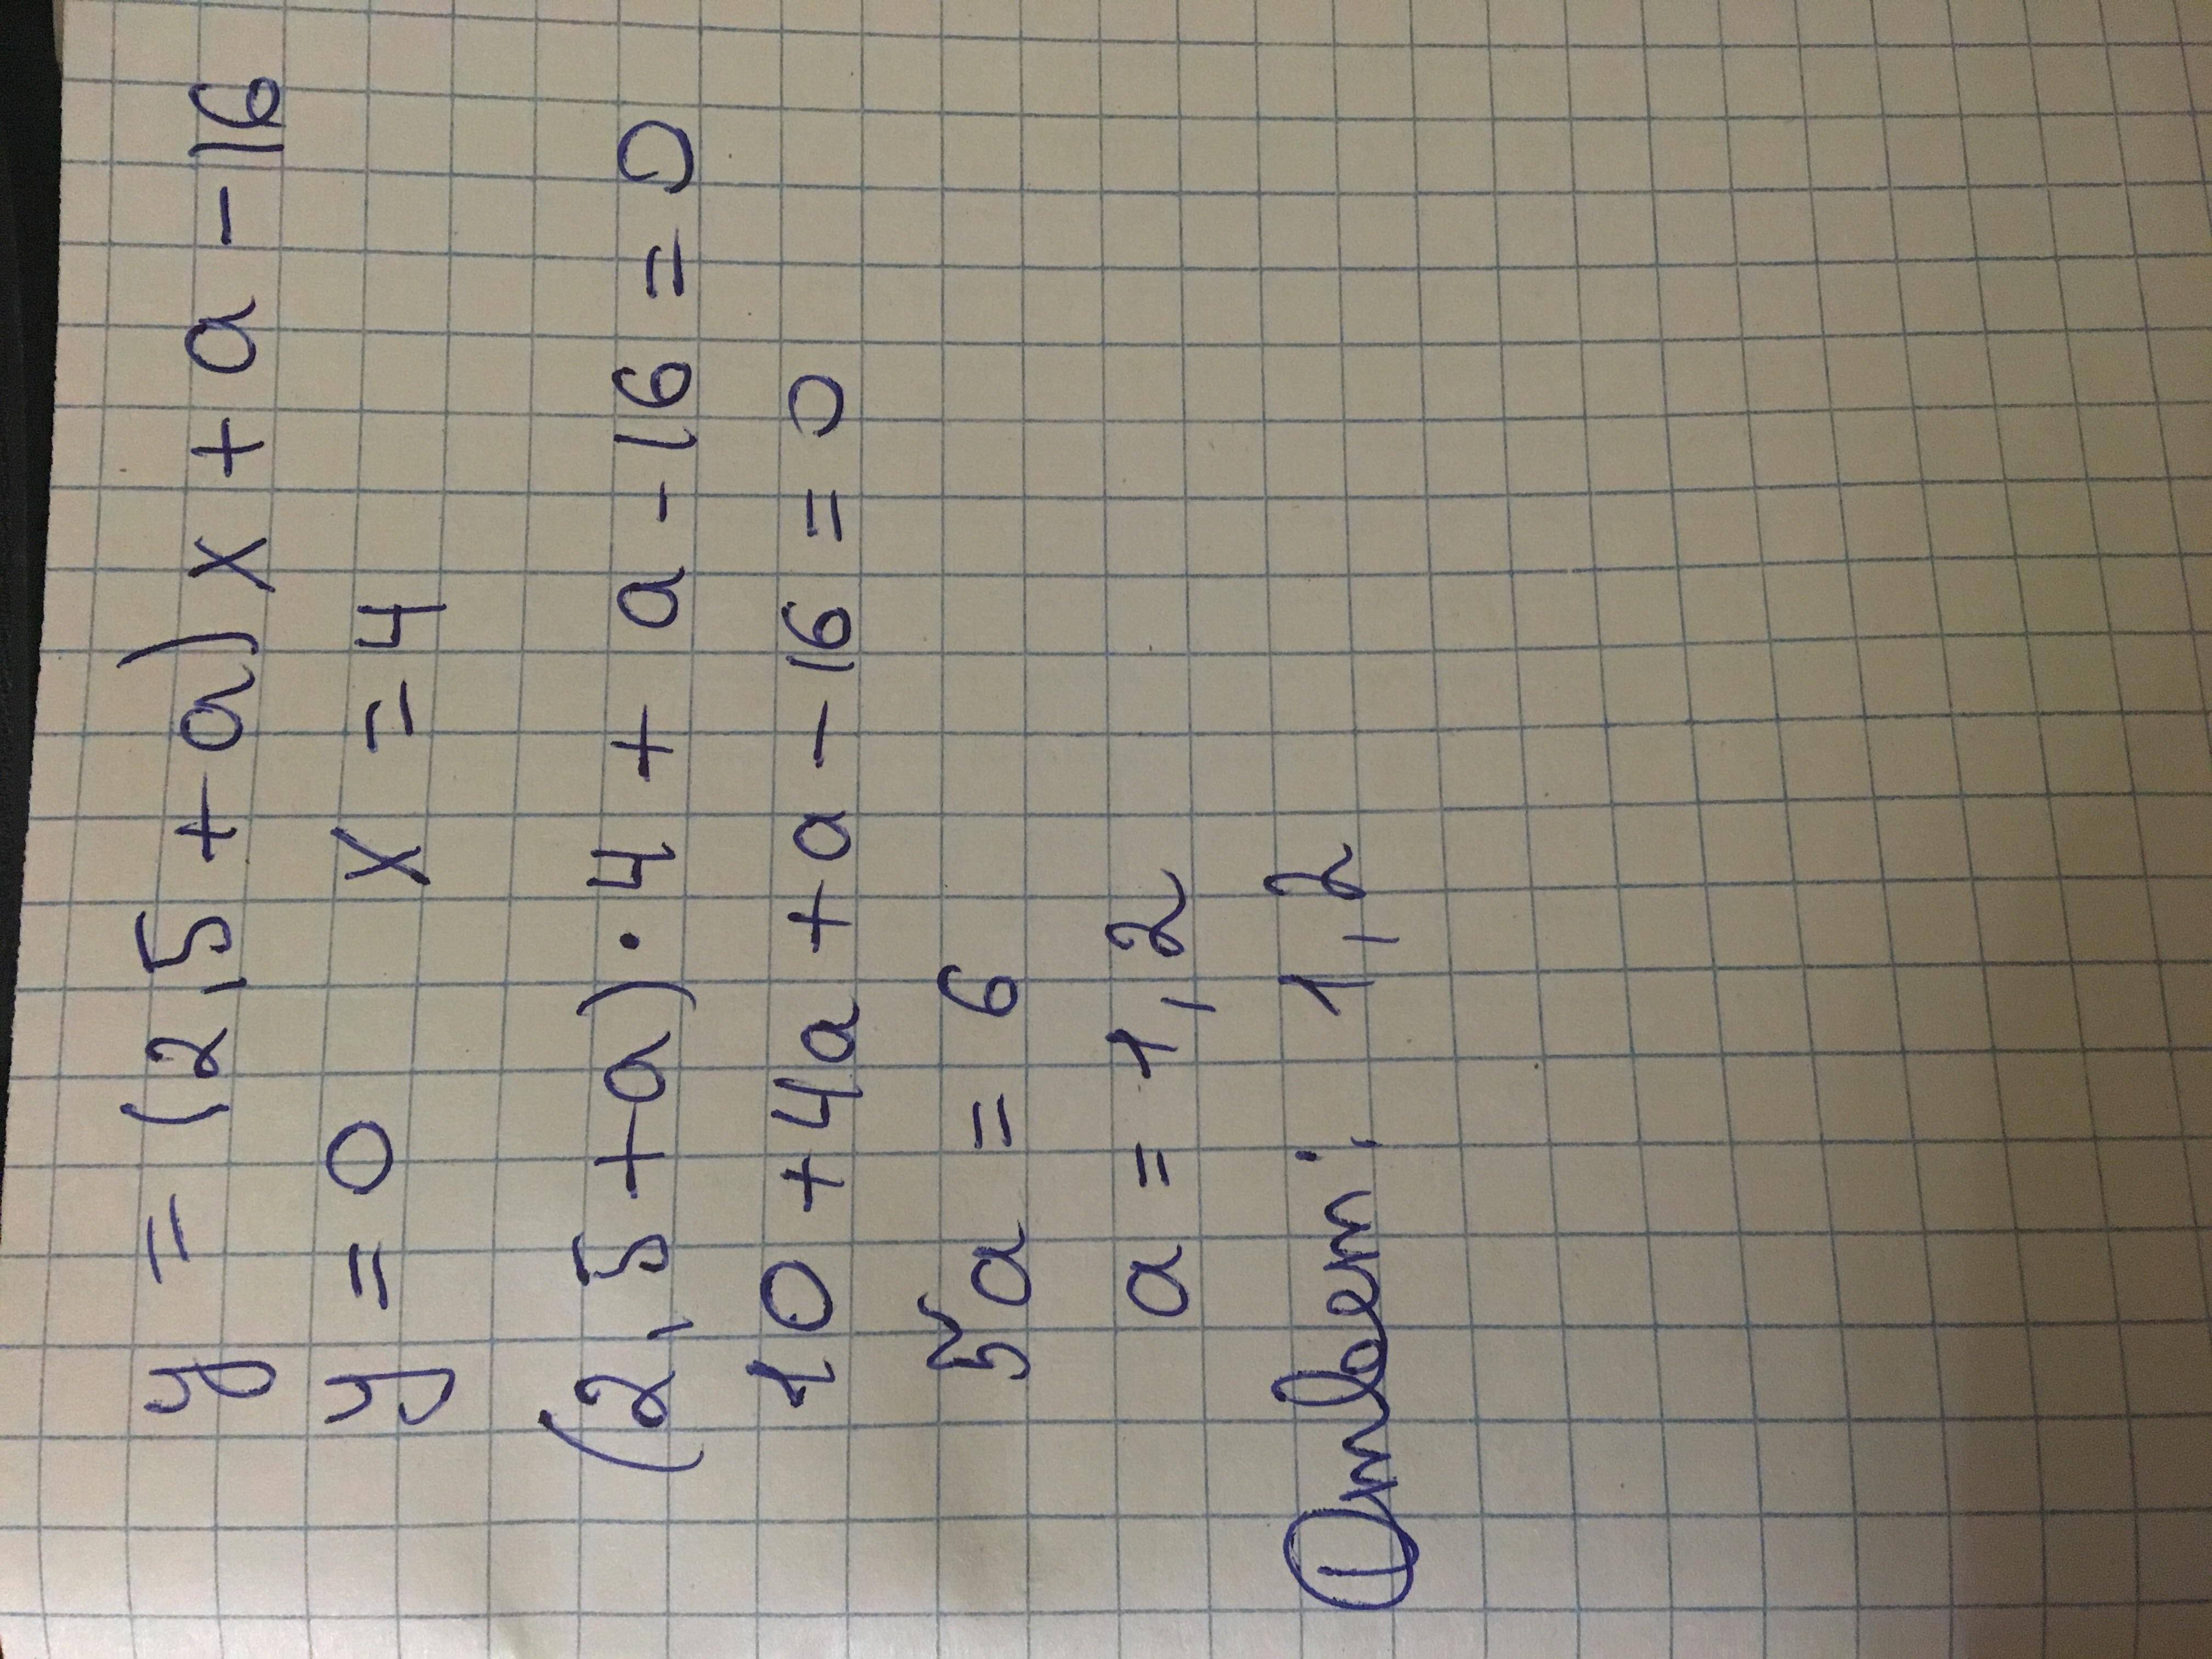 y = (2,5 + a) x + a - 16
y = 0 x = 4
(2,5 + a) · 4 + a - 16 = 0
10 + 4a + a - 16 = 0
5a = 6
a = 1,2
Ответ: 1,2